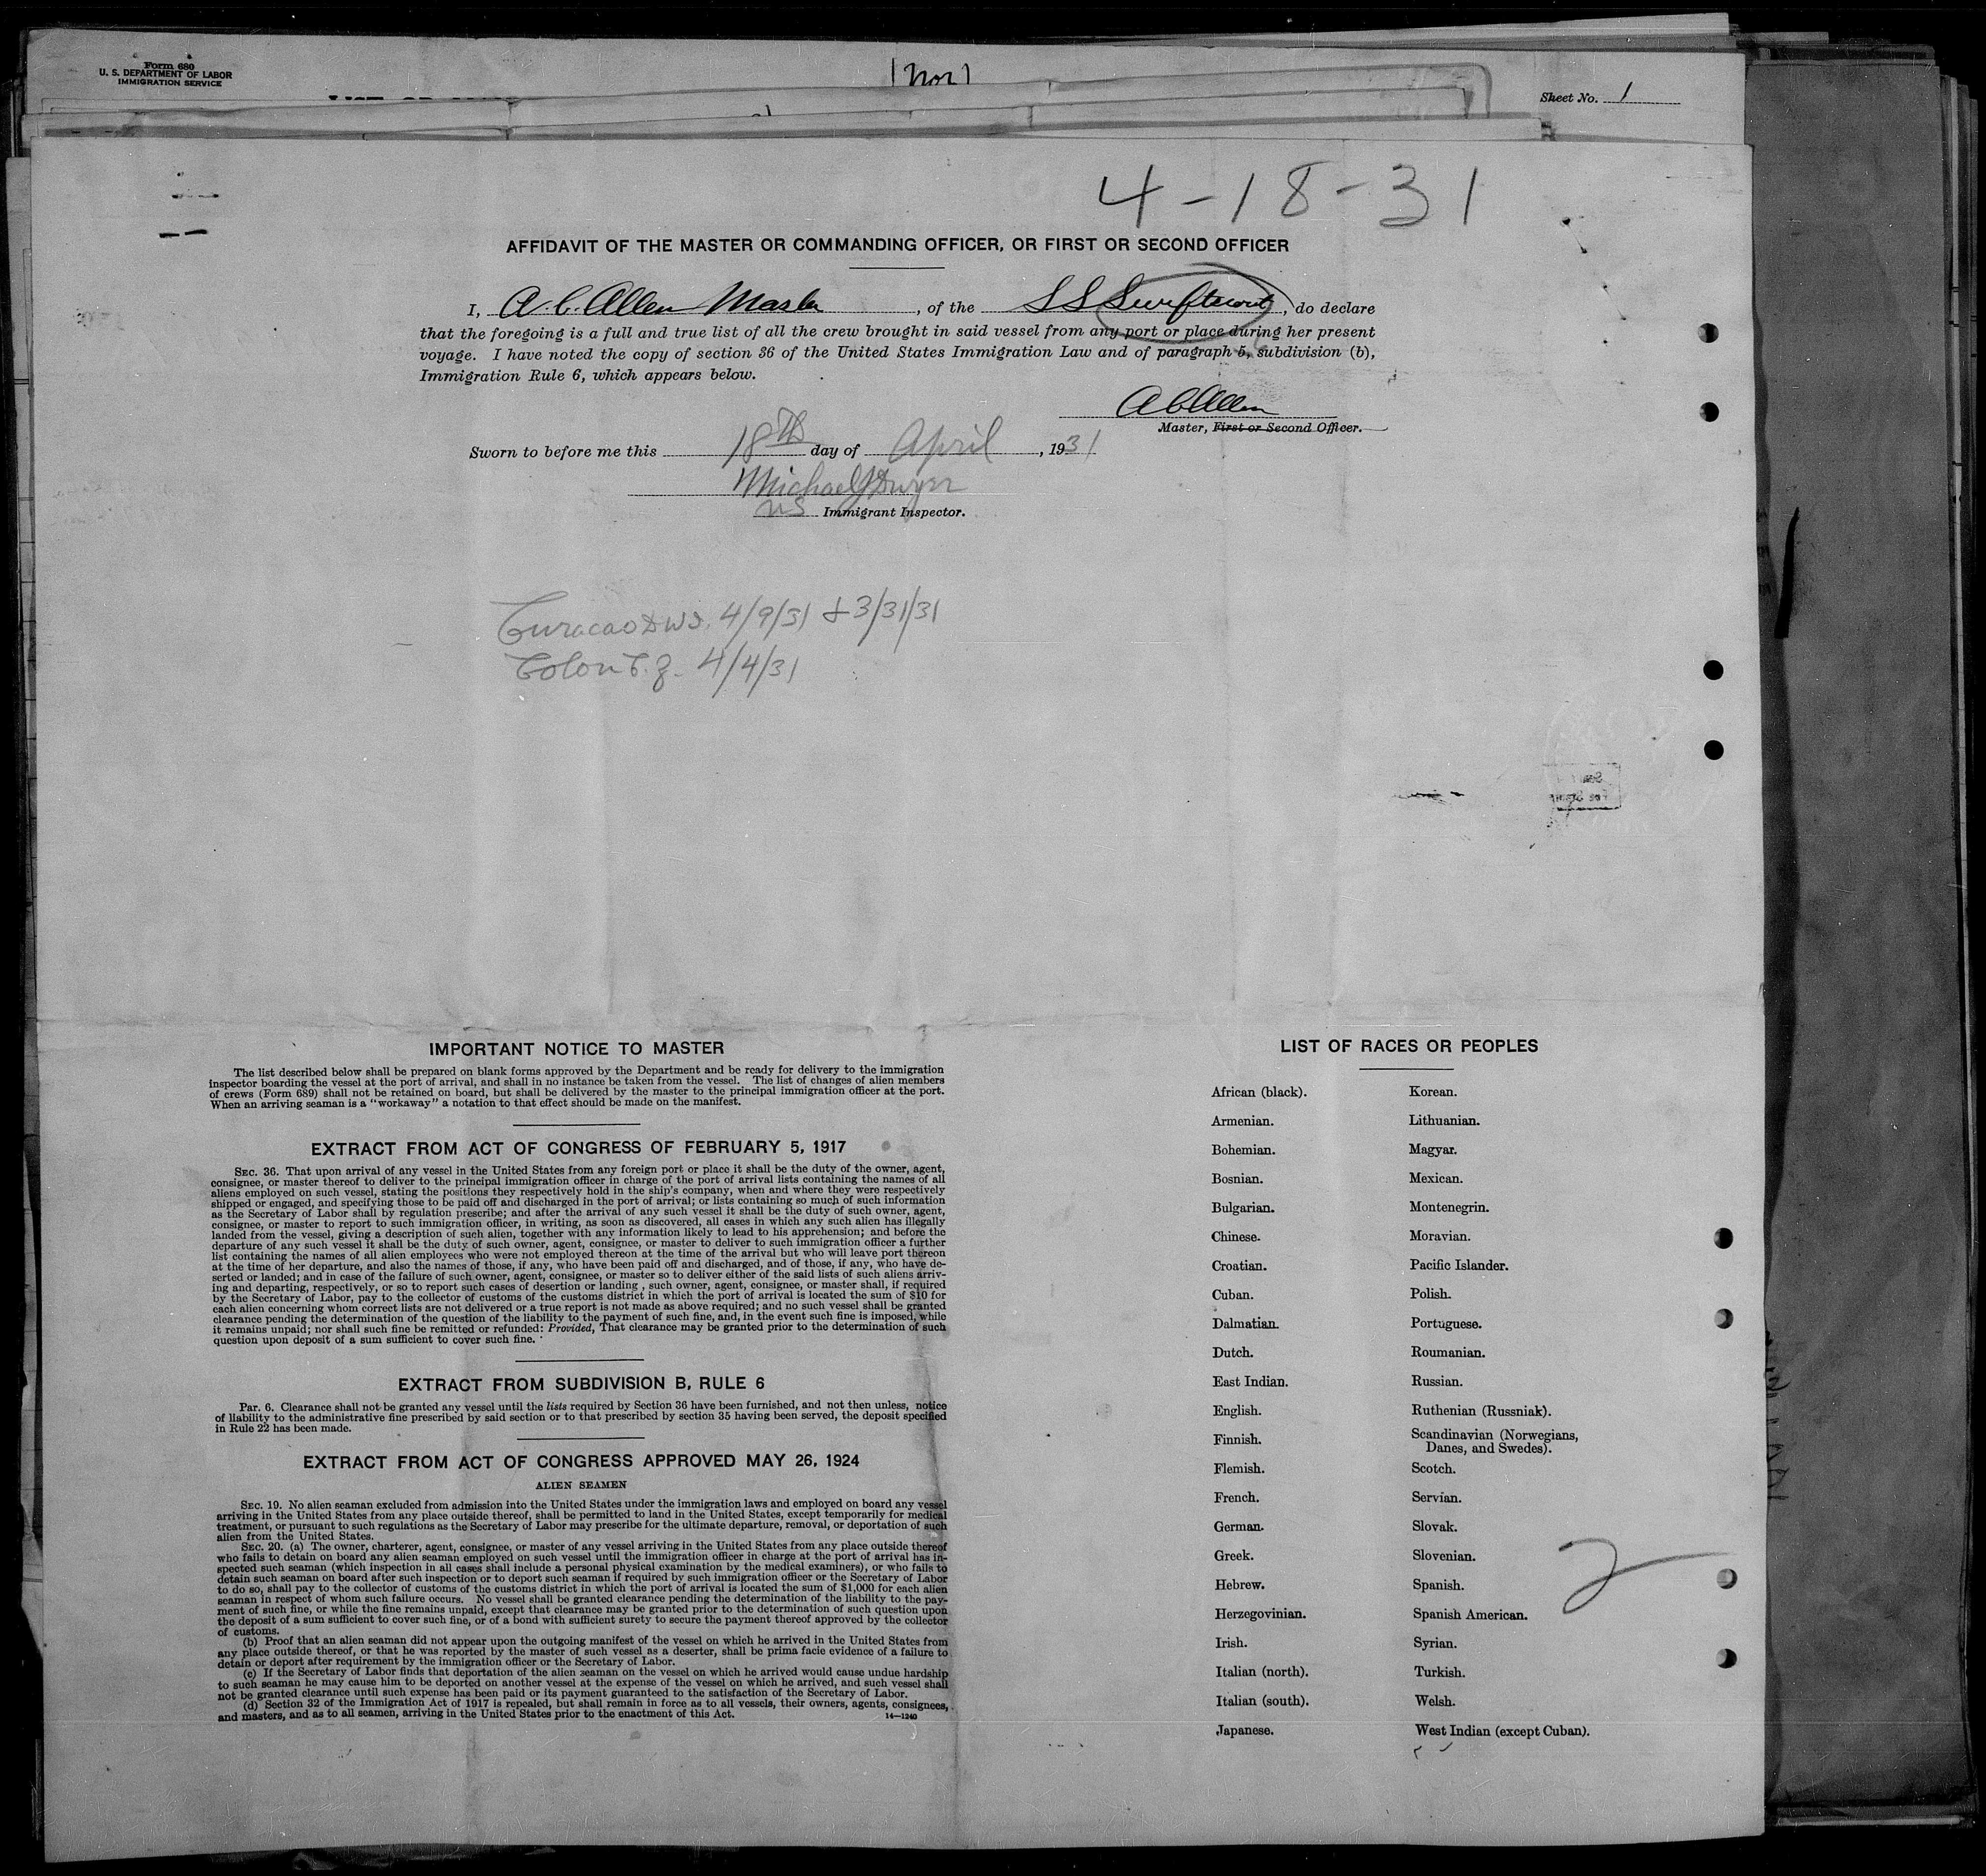 Form 680
U. S. DEPARTMENT OF LABOR
IMMIGRATION SERVICE
Sheet No. 1
4-18-31
AFFIDAVIT OF THE MASTER OR COMMANDING OFFICER, OR FIRST OR SECOND OFFICER
I, A. C. Allen Master, of the SS Swiftscout, do declare
that the foregoing is a full and true list of all the crew brought in said vessel from any port or place during her present
voyage. I have noted the copy of section 36 of the United States Immigration Law and of paragraph 5, subdivision (b),
Immigration Rule 6, which appears below.
A C Allen
Master, First or Second Officer.
Sworn to before me this 18th day of April, 1931
Michael J Dwyer
US Immigrant Inspector.
Curacao D W I. 4/9/31 & 3/31/31
Colon C. Z. 4/4/31
IMPORTANT NOTICE TO MASTER
The list described below shall be prepared on blank forms approved by the Department and be ready for delivery to the immigration
inspector boarding the vessel at the port of arrival, and shall in no instance be taken from the vessel. The list of changes of alien members
of crews (Form 689) shall not be retained on board, but shall be delivered by the master to the principal immigration officer at the port.
When an arriving seaman is a "workaway" a notation to that effect should be made on the manifest.
EXTRACT FROM ACT OF CONGRESS OF FEBRUARY 5, 1917
SEC. 36. That upon arrival of any vessel in the United States from any foreign port or place it shall be the duty of the owner, agent,
consignee, or master thereof to deliver to the principal immigration officer in charge of the port of arrival lists containing the names of all
aliens employed on such vessel, stating the positions they respectively hold in the ship's company, when and where they were respectively
shipped or engaged, and specifying those to be paid off and discharged in the port of arrival; or lists containing so much of such information
as the Secretary of Labor shall by regulation prescribe; and after the arrival of any such vessel it shall be the duty of such owner, agent,
consignee, or master to report to such immigration officer, in writing, as soon as discovered, all cases in which any such alien has illegally
landed from the vessel, giving a description of such alien, together with any information likely to lead to his apprehension; and before the
departure of any such vessel it shall be the duty of such owner, agent, consignee, or master to deliver to such immigration officer a further
list containing the names of all alien employees who were not employed thereon at the time of the arrival but who will leave port thereon
at the time of her departure, and also the names of those, if any, who have been paid off and discharged, and of those, if any, who have de-
serted or landed; and in case of the failure of such owner, agent, consignee, or master so to deliver either of the said lists of such aliens arriv-
ing and departing, respectively, or so to report such cases of desertion or landing, such owner, agent, consignee, or master shall, if required
by the Secretary of Labor, pay to the collector of customs of the customs district in which the port of arrival is located the sum of $10 for
each alien concerning whom correct lists are not delivered or a true report is not made as above required; and no such vessel shall be granted
clearance pending the determination of the question of the liability to the payment of such fine, and, in the event such fine is imposed, while
it remains unpaid; nor shall such fine be remitted or refunded: Provided, That clearance may be granted prior to the determination of such
question upon deposit of a sum sufficient to cover such fine.
EXTRACT FROM SUBDIVISION B, RULE 6
Par. 6. Clearance shall not be granted any vessel until the lists required by Section 36 have been furnished, and not then unless, notice
of liability to the administrative fine prescribed by said section or to that prescribed by section 35 having been served, the deposit specified
in Rule 22 has been made.
EXTRACT FROM ACT OF CONGRESS APPROVED MAY 26, 1924
ALIEN SEAMEN
SEC. 19. No alien seaman excluded from admission into the United States under the immigration laws and employed on board any vessel
arriving in the United States from any place outside thereof, shall be permitted to land in the United States, except temporarily for medical
treatment, or pursuant to such regulations as the Secretary of Labor may prescribe for the ultimate departure, removal, or deportation of such
alien from the United States.
SEC. 20. (a) The owner, charterer, agent, consignee, or master of any vessel arriving in the United States from any place outside thereof
who fails to detain on board any alien seaman employed on such vessel until the immigration officer in charge at the port of arrival has in-
spected such seaman (which inspection in all cases shall include a personal physical examination by the medical examiners), or who fails to
detain such seaman on board after such inspection or to deport such seaman if required by such immigration officer or the Secretary of Labor
to do so, shall pay to the collector of customs of the customs district in which the port of arrival is located the sum of $1,000 for each alien
seaman in respect of whom such failure occurs. No vessel shall be granted clearance pending the determination of the liability to the pay-
ment of such fine, or while the fine remains unpaid, except that clearance may be granted prior to the determination of such question upon
the deposit of a sum sufficient to cover such fine, or of a bond with sufficient surety to secure the payment thereof approved by the collector
of customs.
(b) Proof that an alien seaman did not appear upon the outgoing manifest of the vessel on which he arrived in the United States from
any place outside thereof, or that he was reported by the master of such vessel as a deserter, shall be prima facie evidence of a failure to
detain or deport after requirement by the immigration officer or the Secretary of Labor.
(c) If the Secretary of Labor finds that deportation of the alien seaman on the vessel on which he arrived would cause undue hardship
to such seaman he may cause him to be deported on another vessel at the expense of the vessel on which he arrived, and such vessel shall
not be granted clearance until such expense has been paid or its payment guaranteed to the satisfaction of the Secretary of Labor.
(d) Section 32 of the Immigration Act of 1917 is repealed, but shall remain in force as to all vessels, their owners, agents, consignees,
and masters, and as to all seamen, arriving in the United States prior to the enactment of this Act.
14—1240
LIST OF RACES OR PEOPLES
African (black).
Armenian.
Bohemian.
Bosnian.
Bulgarian.
Chinese.
Croatian.
Cuban.
Dalmatian.
Dutch.
East Indian.
English.
Finnish.
Flemish.
French.
German.
Greek.
Hebrew.
Herzegovinian.
Irish.
Italian (north).
Italian (south).
Japanese.
Korean.
Lithuanian.
Magyar.
Mexican.
Montenegrin.
Moravian.
Pacific Islander.
Polish.
Portuguese.
Roumanian.
Russian.
Ruthenian (Russniak).
Scandinavian (Norwegians,
Danes, and Swedes).
Scotch.
Servian.
Slovak.
Slovenian.
Spanish.
Spanish American.
Syrian.
Turkish.
Welsh.
West Indian (except Cuban).
2